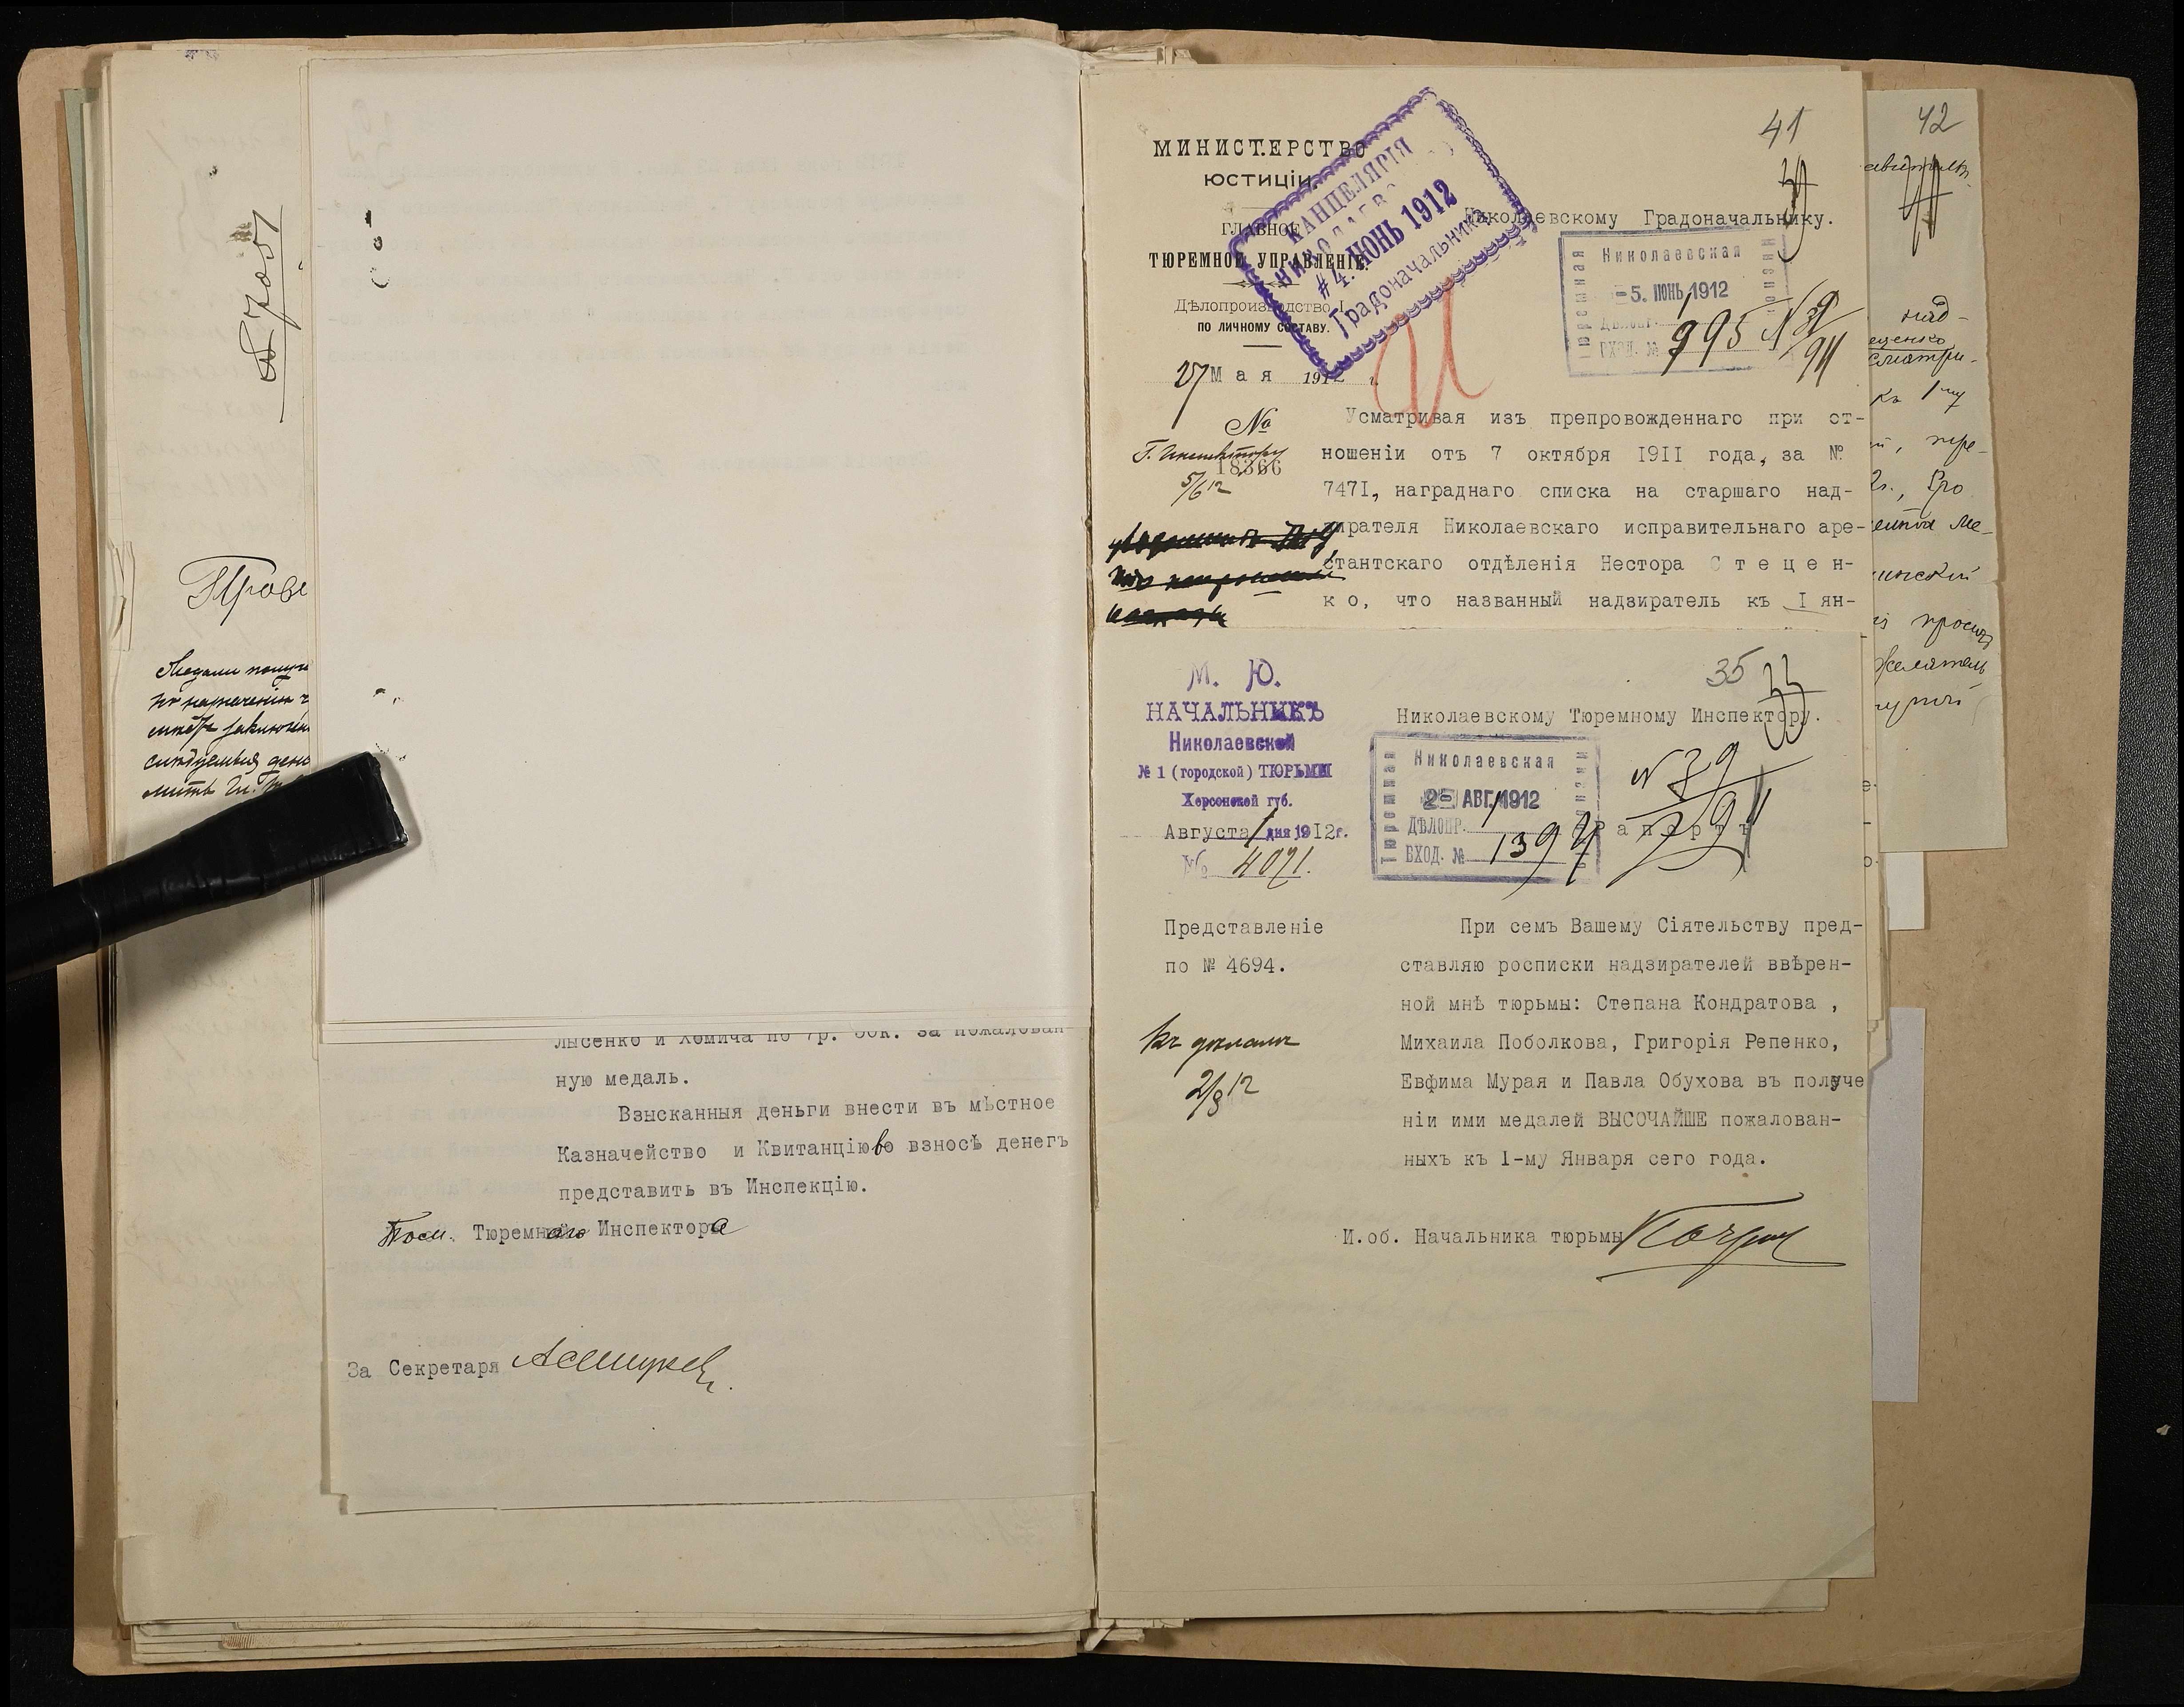 лысенко и Хомича по 7р. 50к. за пожалован
ную медаль.
Взысканныя деньги внести въ мѣстное
Казначейство и Квитанцію во взносѣ денегъ
представить въ Инспекцію.
Пом. Тюремнаго Инспектора
За Секретаря
41
МИНИСТЕРСТВО
ЮСТИЦІИ.
ГЛАВНОЕ
ТЮРЕМНОЕ УПРАВЛЕНІЕ.
Дѣлопроизводство I.
ПО ЛИЧНОМУ СОСТАВУ.
27 Мая 1912 г.
№
18366
Г. Инспектору
5/6 12
КАНЦЕЛЯРІЯ
4. ІЮНЬ 1912
Градоначальника
Николаевскому Градоначальнику.
Тюремная
Николаевская
-5. ІЮНЬ 1912
ВХОД. № 995
Усматривая изъ препровожденнаго при от-
ношеніи отъ 7 октября 1911 года, за №
7471, награднаго списка на старшаго над-
зирателя Николаевскаго исправительнаго аре-
стантскаго отдѣленія Нестора Стецен-
ко, что названный надзиратель къ I ян-
35
М. Ю.
НАЧАЛЬНИКЪ
Николаевской
№ 1 (городской) ТЮРЬМЫ
Херсонской губ.
Августа 1 дня 1912г.
№ 4071.
Николаевскому Тюремному Инспектору.
Тюремная
Николаевская
2 АВГ. 1912
ДѢЛОПР. 1
ВХОД. № 1394
Рапортъ
Представленіе
по № 4694.
Къ докладу
2/8 12
При семъ Вашему Сіятельству пред-
ставляю росписки надзирателей ввѣрен-
ной мнѣ тюрьмы: Степана Кондратова ,
Михаила Поболкова, Григорія Репенко,
Евфима Мурая и Павла Обухова въ получе
ніи ими медалей ВЫСОЧАЙШЕ пожалован-
ныхъ къ I-му Января сего года.
И.об. Начальника тюрьмы
42
над-
къ 1му